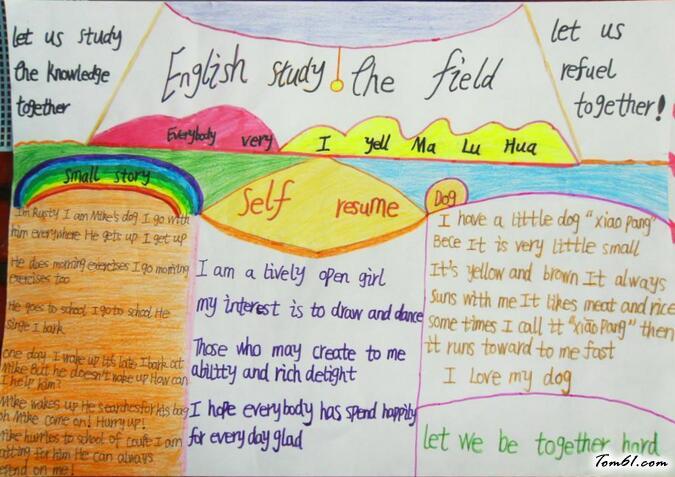 let us study
the knowledge
together
English study the field
let us
refuel
together!
Everybody very I yell Ma Lu Hua
small story
I'm Rusty I am Mike's dog I go with
him everywhere He gets up I get up
He does morning exercises I go morning
exercises too
He goes to school I go to school He
sings I bark
one day I wake up It's late, I bark at
Mike But he doesn't wake up How can
I help him?
Mike wakes up He searches for his bag
oh Mike come on! Hurry up!
Mike hurries to school of I am
for him He can always
on me!
Self resume
I am a lively open girl
my interest is to draw and dance
Those who may create to me
ability and rich delight
I hope everybody has spend happity
for every day glad
Dog
I have a little dog "xiao pang"
Bece It is very little small
It's yellow and brown It always
suns with me It likes meat and rice
some times I call it "xiao pang" then
it runs toward to me fast
I love my dog
let we be together hard
Tom61.com